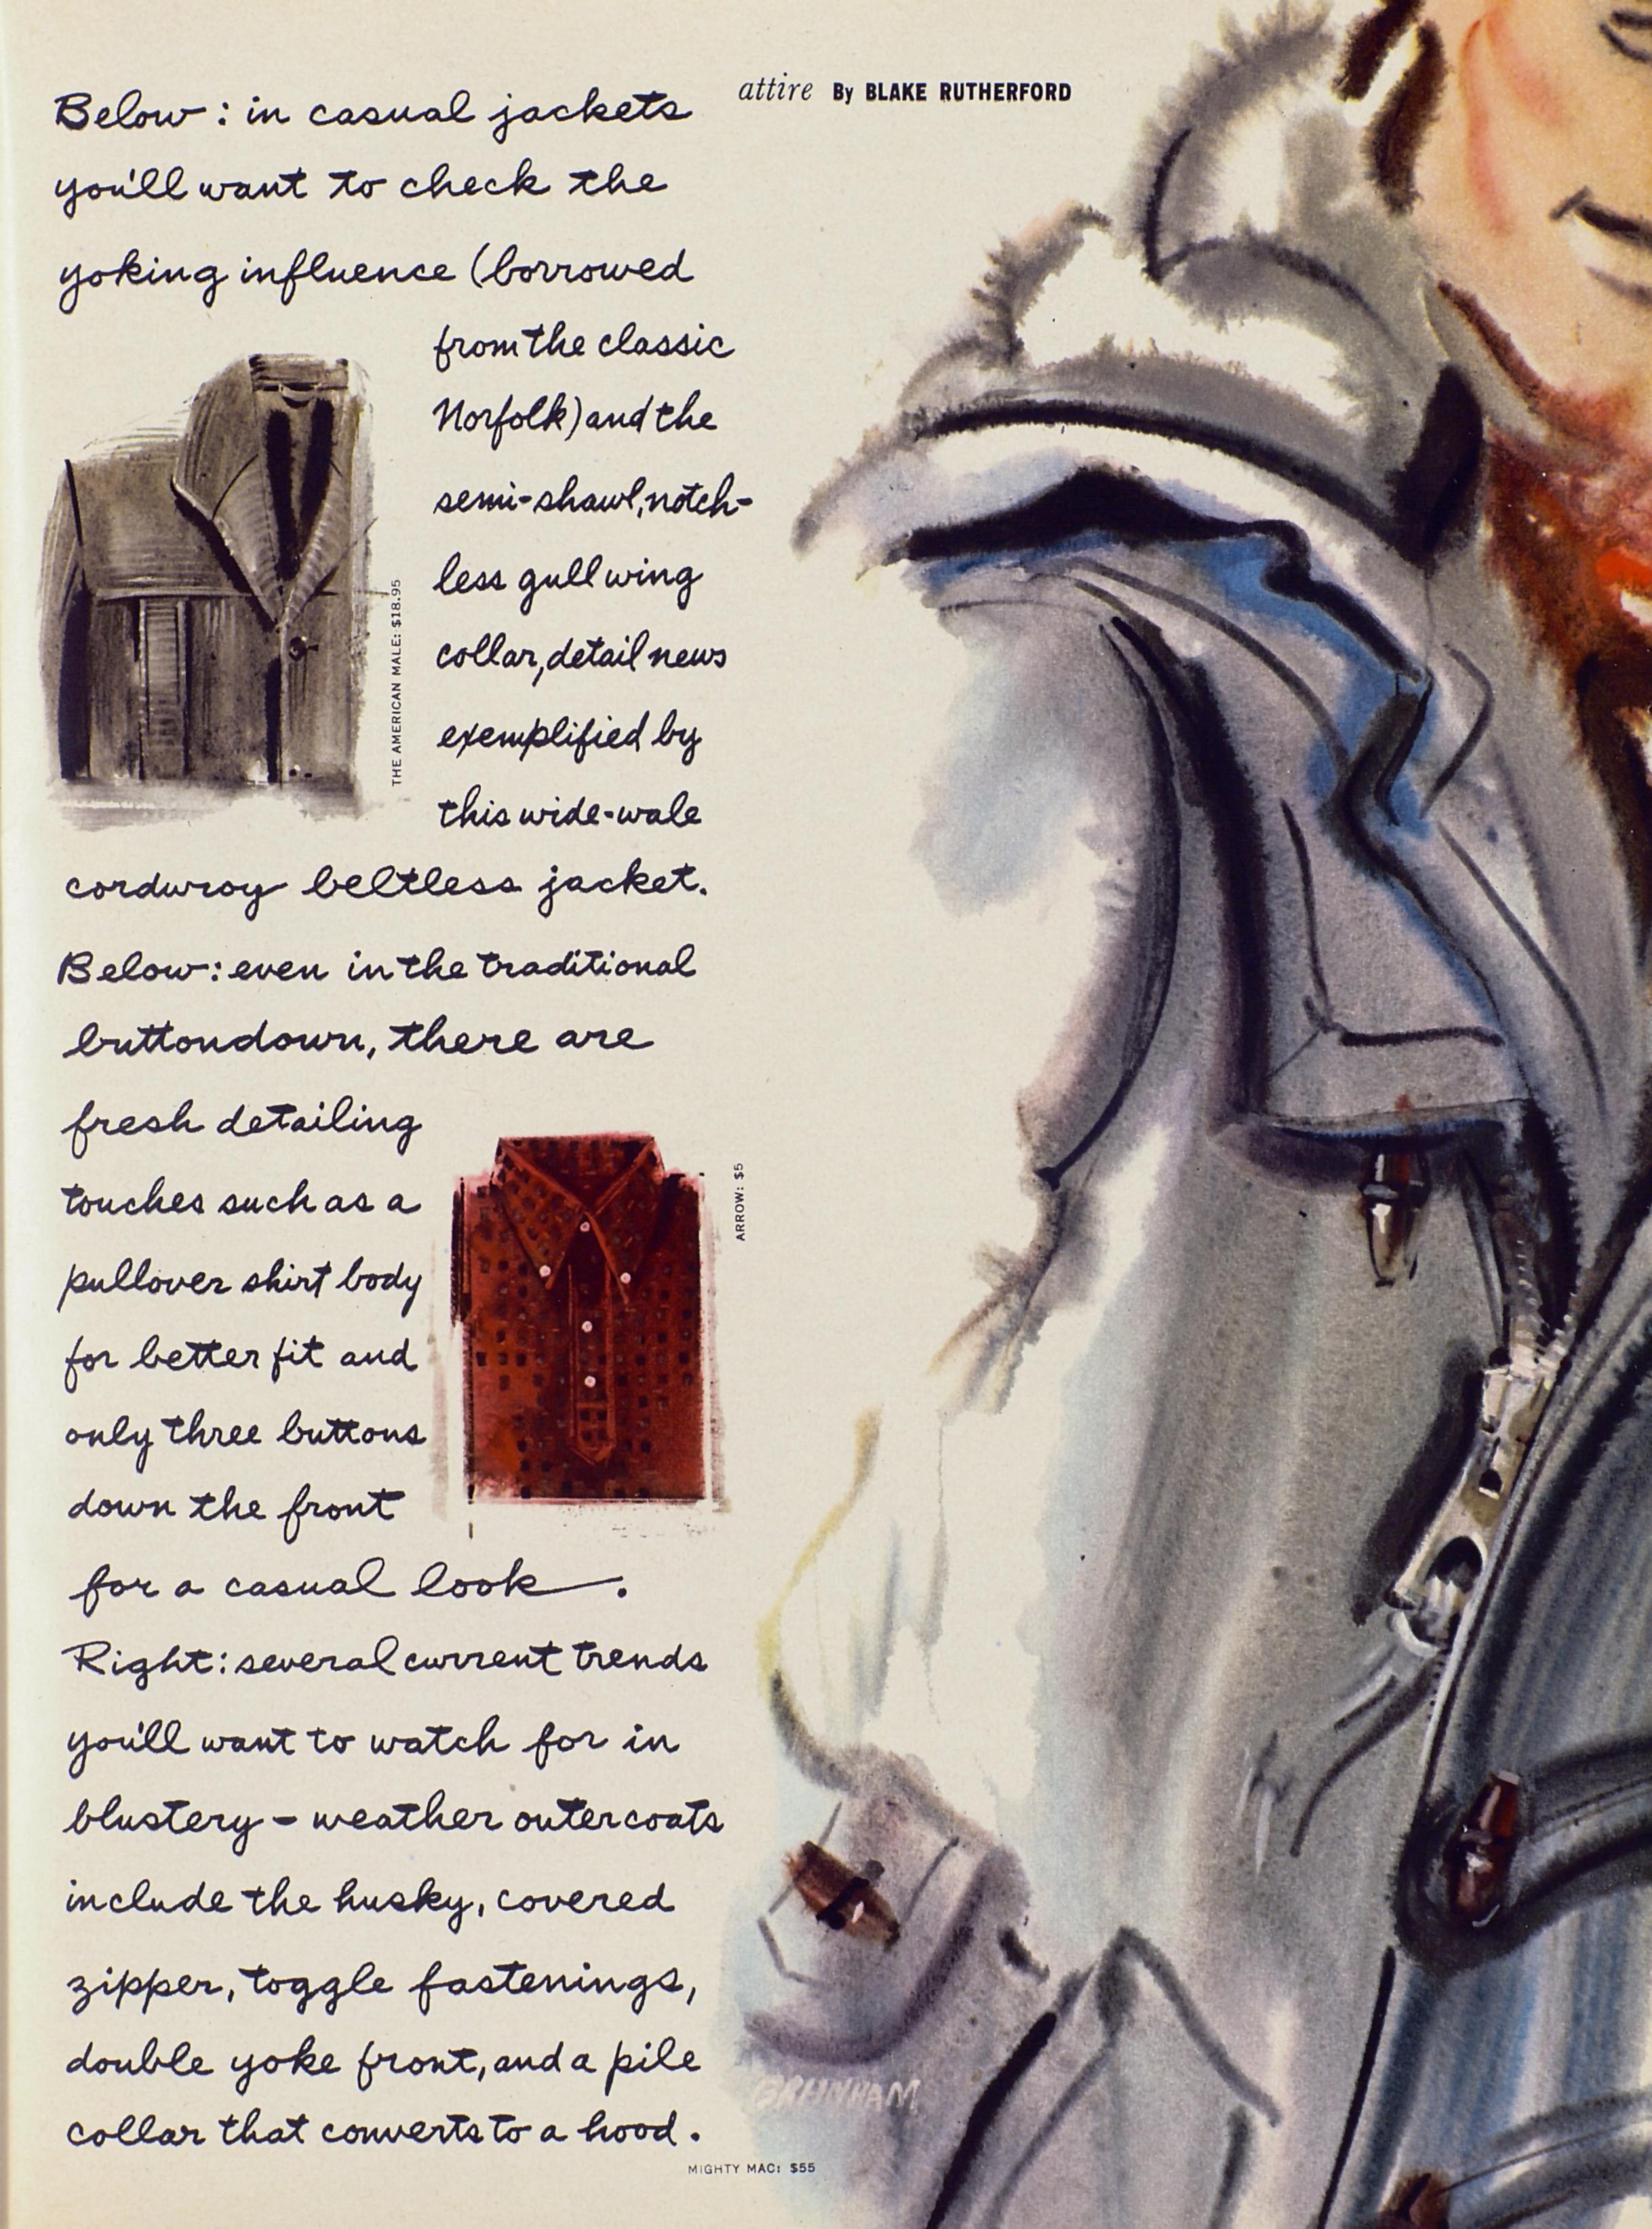 attire By BLAKE RUTHERFORD
Below: in casual jackets
you'll want to check the
yoking influence (borrowed
from the classic
Norfolk) and the
semi-shawl, notch-
less gull wing
collar, detail news
exemplified by
this wide-wale
corduroy beltless jacket.
THE AMERICAN MALE: $18.95
Below: even in the traditional
buttondown, there are
fresh detailing
touches such as a
pullover shirt body
for better fit and
only three buttons
down the front
for a casual look.
ARROW: $5
Right: several current trends
you'll want to watch for in
blustery-weather outercoats
include the husky, covered
zipper, toggle fastenings,
double yoke front, and a pile
collar that converts to a hood.
MIGHTY MAC: $55